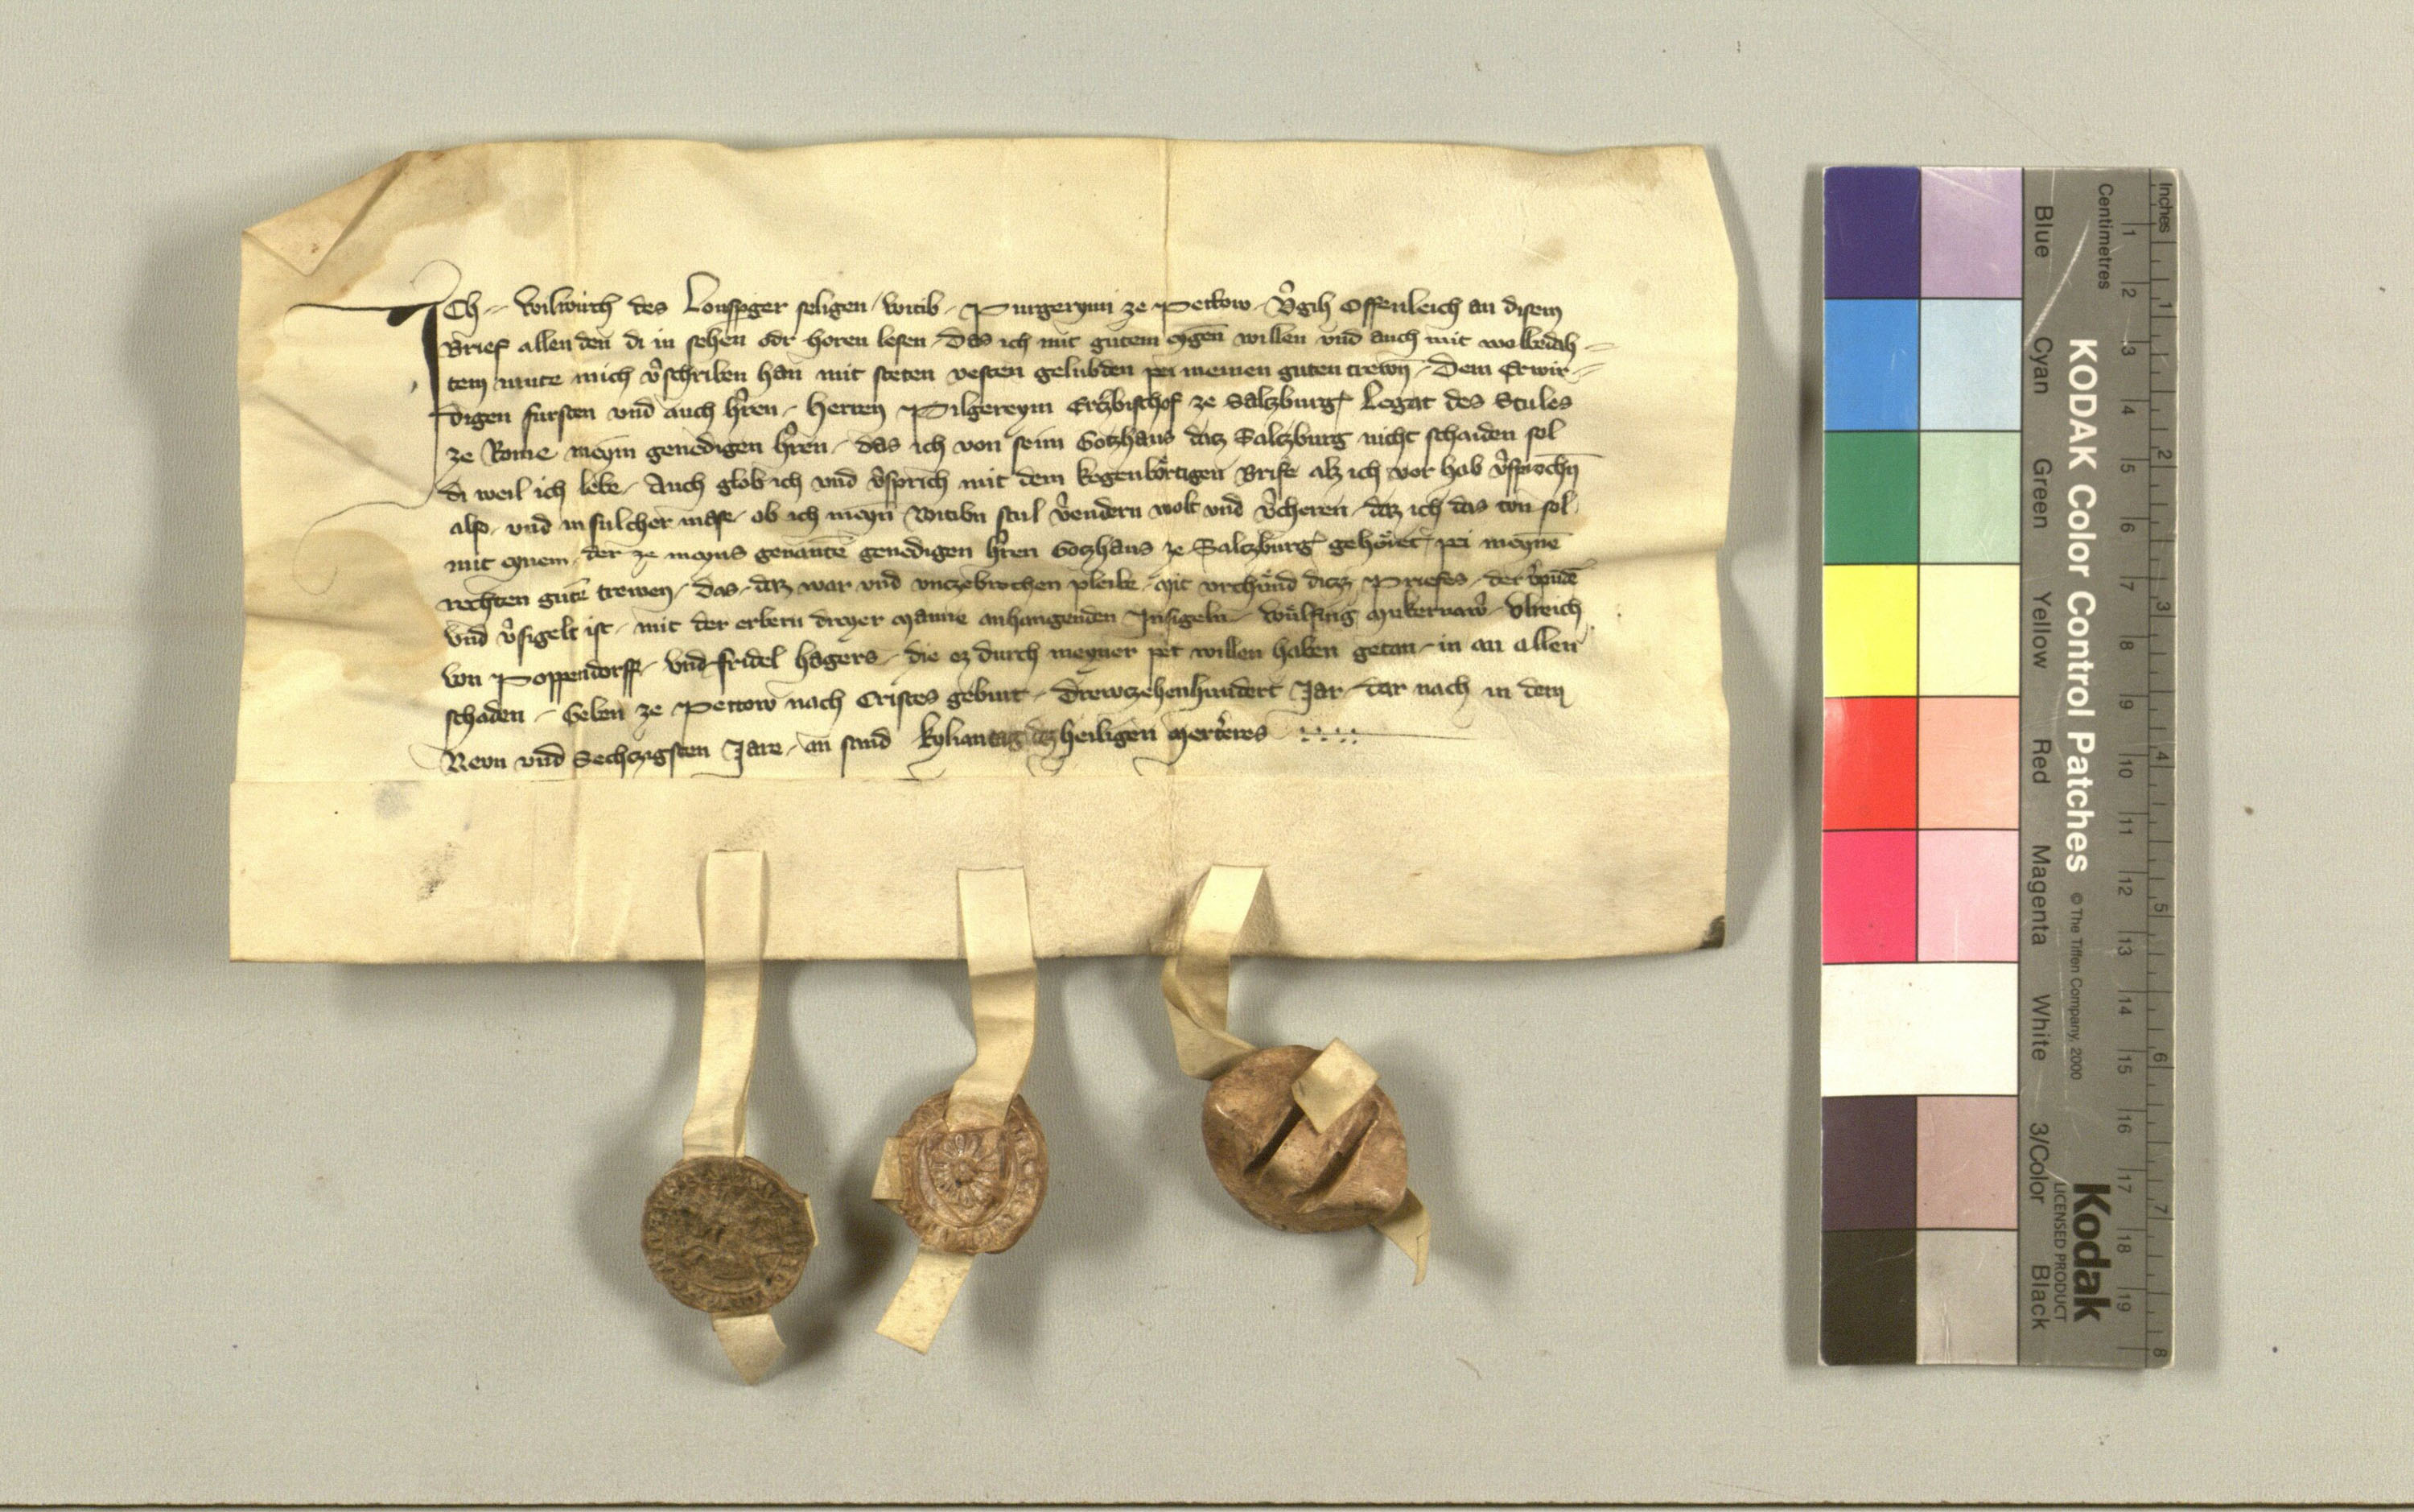 ICh Wilwirch des Lonsperger seligen witib Purgerynn ze Pettow v̾gih Offenleich an disem
Brief allen den di in sehen odr horen lesen Das ich mit gutem eygen willen vnd auch mit wolbedah
tem mute mich v̾schriben han mit steten vesten gelubden pei meinen guten trewn Dem Erwir
digen fursten vnd auch h̾ren Herren Pilgereym Erczbischof ze Salczburg Legat des Stules
ze Rome meym genedigen h̾ren das ich von seim Gotzhaus datz Salczburg nicht schaiden sol
di weil ich lebe Auch glob ich vnd v̾sprich mit dem kegenbörtigen Brife alz ich vor hab v̾sprochn̄
also vnd in sulcher mase ob ich meyn witibn stul v̾endern wolt vnd v̾cheren daz ich das ton sol
mit eynem der ze meyns genantē genedigen h̾ren Gotzhaus ze Salczburg gehöret pei meynē
rechten gutē trewen das daz war vnd vnczebrochen pleibe Mit vrchünd dicz Priefes der
vnd v̾sigelt ist mit der erbern dreyer manne anhangenden Insigeln Wülfing Vlreich
von Poppendorff vnd fridel hagers die ez durch meyner pet willen haben getan in an allen
schaden Geben ze Pettow nach Cristes geburt Drewczehenhundert Jar dar nach in dem
Nevn vnd Sechczigsten Jare an sand kyliantag dez heiligen merterers
KODAK Color Control Patches
© The Tiffen Company, 2000
Kodak
LICENSED PRODUCT
Blue Cyan Green Yellow Red Magenta White 3/Color Black
Centimetres
1 2 3 4 5 6 7 8 9 10 11 12 13 14 15 16 17 18 19
Inches
1 2 3 4 5 6 7 8